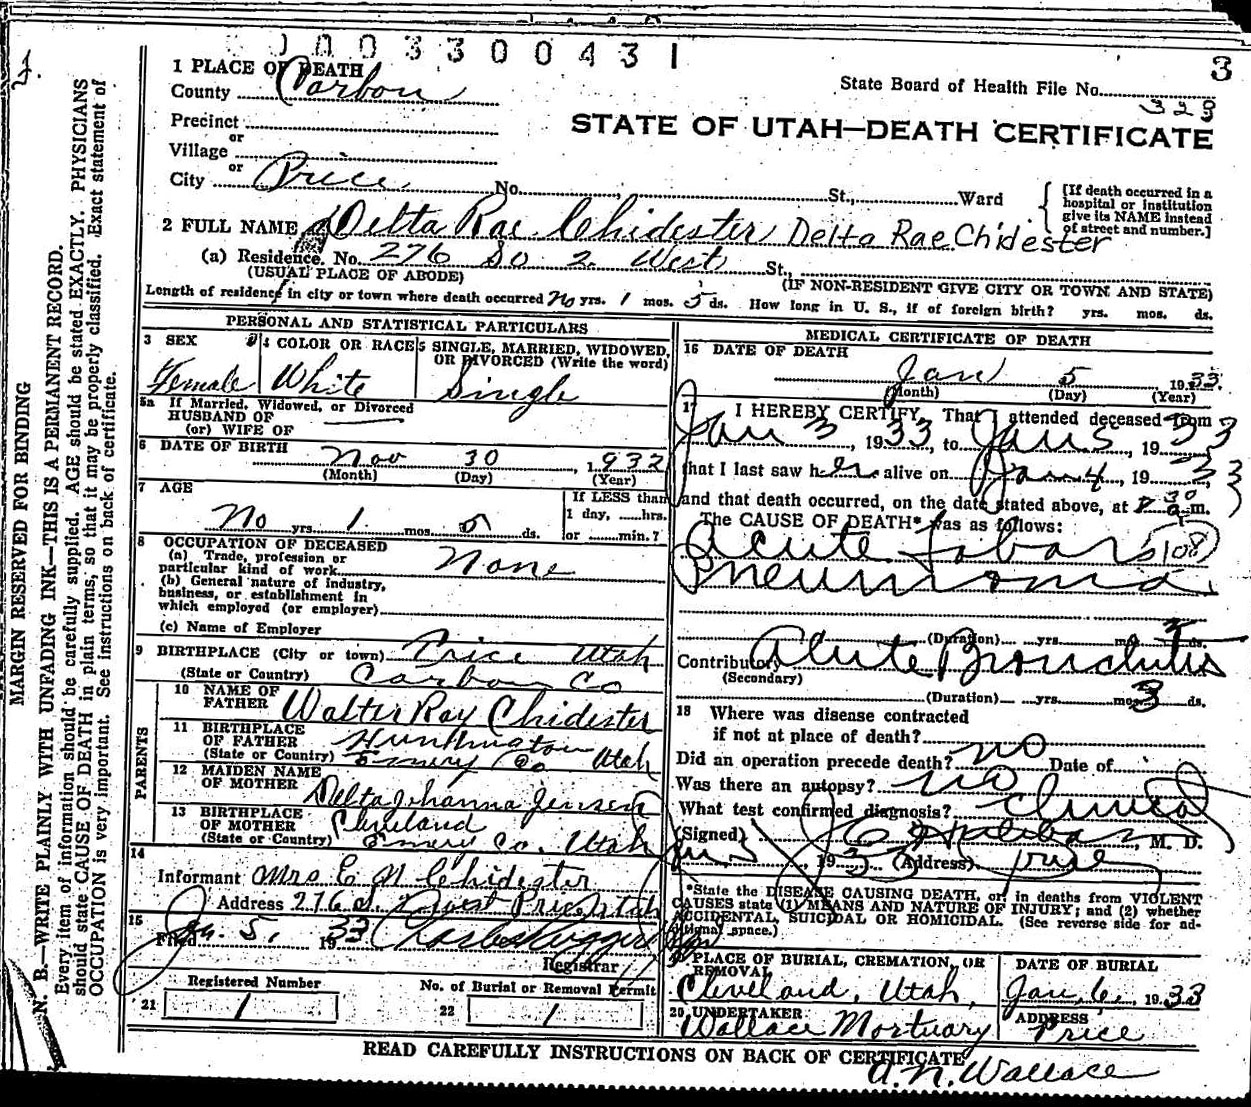 0003300431
3
1 PLACE OF DEATH
County Carbon
State Board of Health File No.
323
Precinct
or
Village
or
City Price No. St., Ward
STATE OF UTAH—DEATH CERTIFICATE
[If death occurred in a
hospital or institution
give its NAME instead
of street and number.]
2 FULL NAME Delta Rae Chidester Delta Rae Chidester
(a) Residence. No. 276 So 2 West St.,
(USUAL PLACE OF ABODE) (IF NON-RESIDENT GIVE CITY OR TOWN AND STATE)
Length of residence in city or town where death occurred No yrs. 1 mos. 5 ds. How long in U. S., if of foreign birth? yrs. mos. ds.
PERSONAL AND STATISTICAL PARTICULARS
3 SEX 4 COLOR OR RACE 5 SINGLE, MARRIED, WIDOWED,
OR DIVORCED (Write the word)
Female White Single
5a If Married, Widowed, or Divorced
HUSBAND OF
(or) WIFE OF
6 DATE OF BIRTH Nov 30, 1932
(Month) (Day) (Year)
7 AGE
If LESS than
1 day, ......hrs.
or ........min.?
No yrs. 1 mos. 5 ds.
8 OCCUPATION OF DECEASED
(a) Trade, profession or
particular kind of work None
(b) General nature of industry,
business, or establishment in
which employed (or employer)
(c) Name of Employer
9 BIRTHPLACE (City or town) Price Utah
(State or Country) Carbon Co
PARENTS
10 NAME OF
FATHER Walter Ray Chidester
11 BIRTHPLACE
OF FATHER Huntington
(State or Country) Emery Co Utah
12 MAIDEN NAME
OF MOTHER Delta Johanna Jensen
13 BIRTHPLACE
OF MOTHER Cleveland
(State or Country) Emery Co. Utah
14
Informant Mrs E N Chidester
Address 276 S. 2 West Price Utah
15
Filed Jan. 5, 1933
Registrar
Registered Number No. of Burial or Removal Permit
21 1 22 1
MEDICAL CERTIFICATE OF DEATH
16 DATE OF DEATH
Jan 5 1933
(Month) (Day) (Year)
17 I HEREBY CERTIFY, That I attended deceased from
Jan 3, 1933, to Jan 5, 1933
that I last saw her alive on Jan 4, 1933
and that death occurred, on the date stated above, at 30 a.m.
The CAUSE OF DEATH* was as follows:
Acute Lobar (108)
Pneumonia
(Duration) yrs. mos. 2 ds.
Contributory Acute Bronchitis
(Secondary)
(Duration) yrs. mos. 3 ds.
18 Where was disease contracted
if not at place of death?
Did an operation precede death? no Date of
Was there an autopsy? no
What test confirmed diagnosis? Clinical
(Signed) , M. D.
Jan 5, 1933 (Address) Price
*State the DISEASE CAUSING DEATH, or, in deaths from VIOLENT
CAUSES state (1) MEANS AND NATURE OF INJURY; and (2) whether
ACCIDENTAL, SUICIDAL OR HOMICIDAL. (See reverse side for ad-
ditional space.)
PLACE OF BURIAL, CREMATION, OR
REMOVAL
DATE OF BURIAL
Cleveland, Utah, Jan. 6, 1933
20 UNDERTAKER ADDRESS
Wallace Mortuary Price
READ CAREFULLY INSTRUCTIONS ON BACK OF CERTIFICATE
A. N. Wallace
MARGIN RESERVED FOR BINDING
N. B.—WRITE PLAINLY WITH UNFADING INK—THIS IS A PERMANENT RECORD.
Every item of information should be carefully supplied. AGE should be stated EXACTLY. PHYSICIANS
should state CAUSE OF DEATH in plain terms, so that it may be properly classified. Exact statement of
OCCUPATION is very important. See instructions on back of certificate.